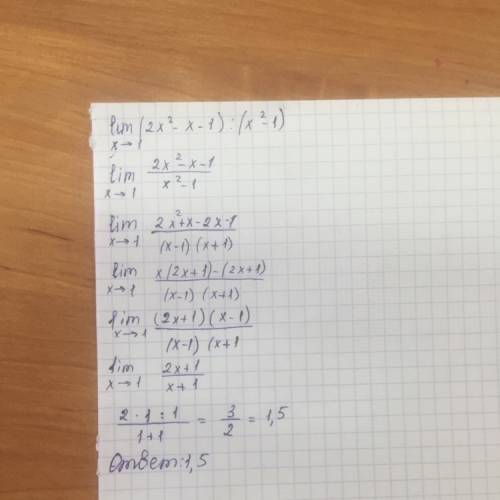 lim x→1 (2x² - x - 1) : (x² - 1)
lim x→1 (2x² - x - 1)/(x² - 1)
lim x→1 (2x² + x - 2x - 1)/((x-1) (x+1))
lim x→1 (x(2x+1) - (2x+1))/((x-1) (x+1))
lim x→1 ((2x+1) (x-1))/((x-1) (x+1
lim x→1 (2x+1)/(x+1)
(2 · 1 : 1)/(1+1) = 3/2 = 1,5
Ответ: 1,5